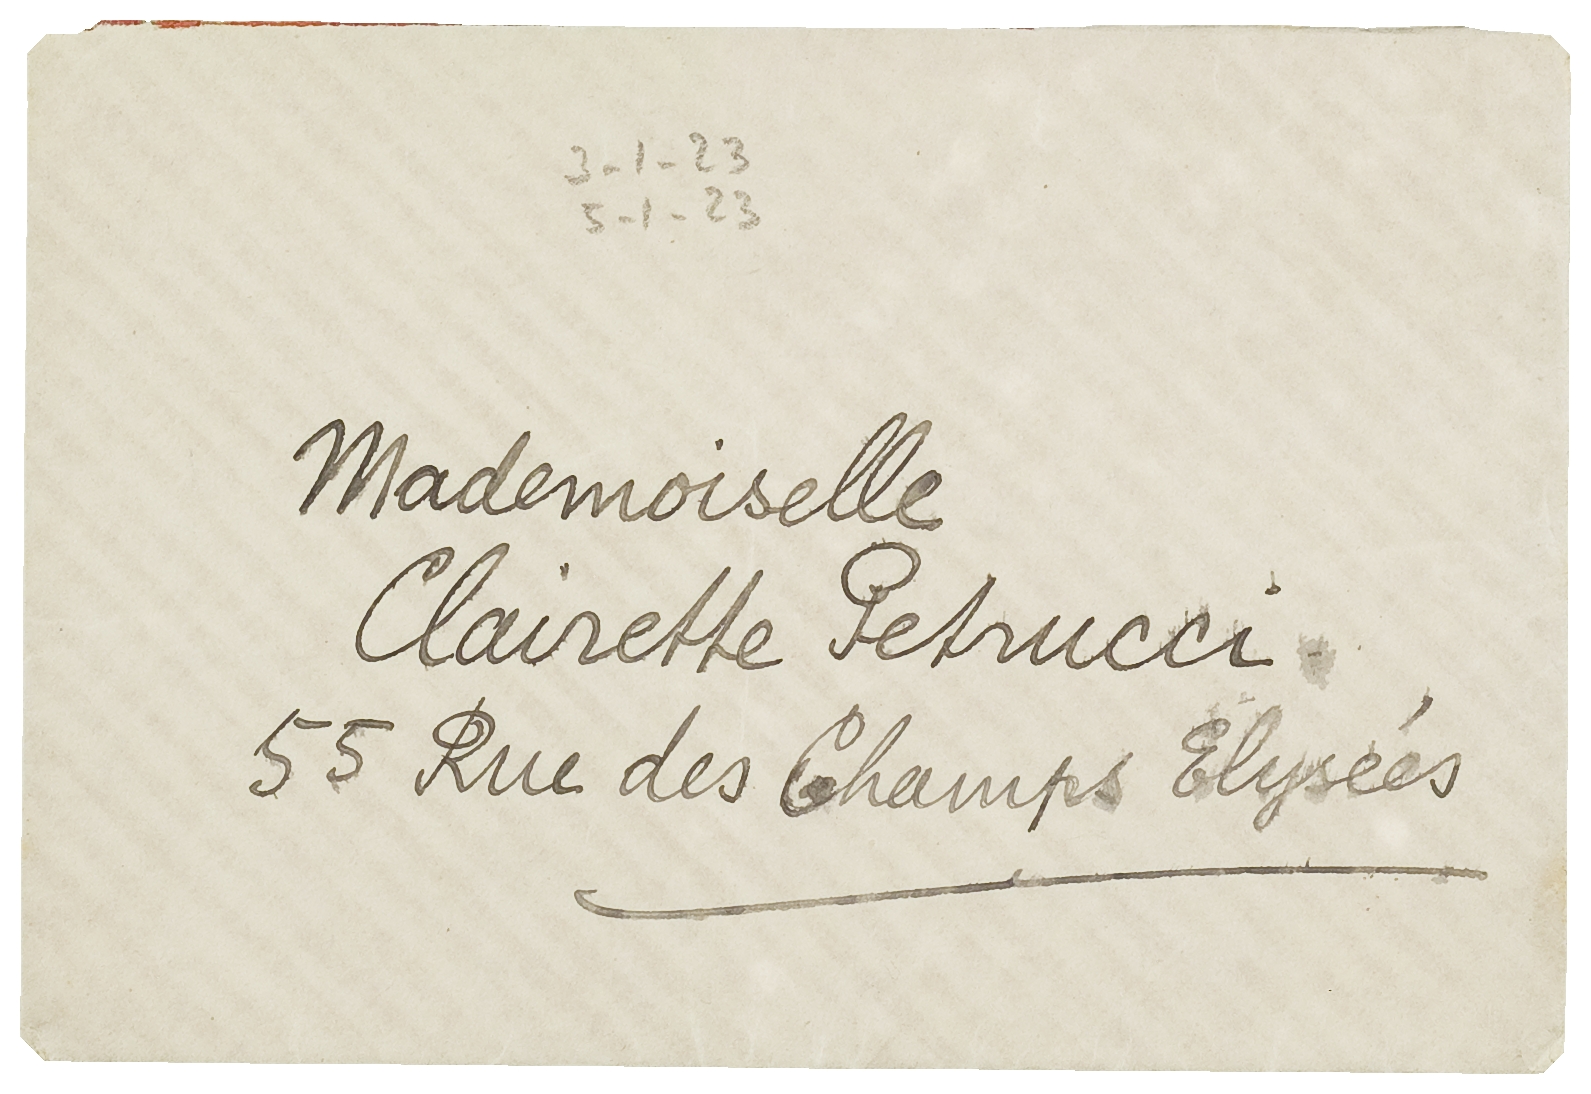 3-1-23
5-1-23
Mademoiselle
Clairette Petrucci.
55 Rue des Champs Elyseés